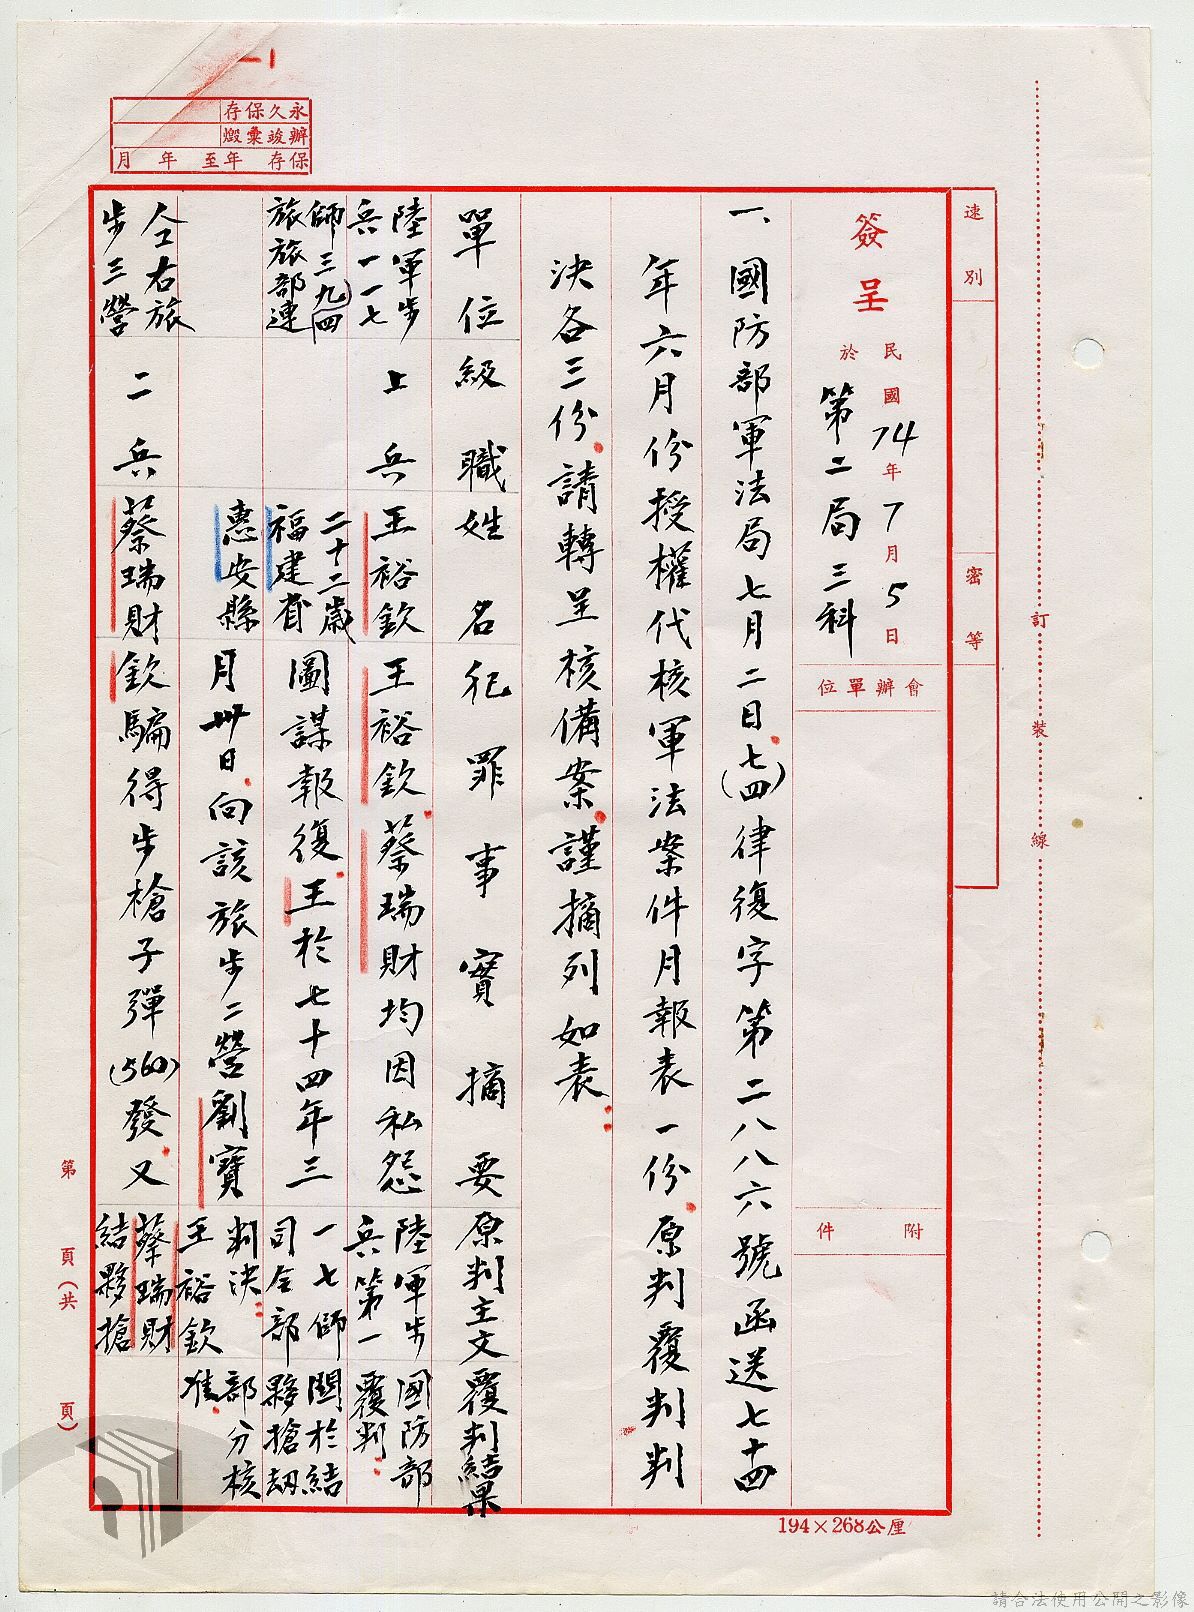 永久保存
辦竣彙燬
保存 年至 年 月
速別
密等
訂裝線
簽呈
民國74年7月5日
於第二局三科
會辦單位
附件
一、國防部軍法局七月二日(七四)律復字第二八八六號函送七十四
年六月份授權代核軍法案件月報表一份原判覆判判
決各三份請轉呈核備案謹摘列如表
單位 級職 姓名 犯罪事實摘要 原判主文 覆判結果
陸軍步
兵一一七
師三九(四)
旅旅部連
上兵
王裕欽
二十二歲
福建省
惠安縣
仝右旅
步三營
二兵
蔡瑞財
王裕欽蔡瑞財均因私怨
圖謀報復王於七十四年三
月卅日向該旅步二營劉寶
欽騙得步槍子彈(560)發又
陸軍步
兵第一
一七師
司令部
判決
王裕欽
蔡瑞財
結夥搶
國防部
覆判
關於結
夥搶劫
部分核
准
第 頁(共 頁)
194×268公厘
請合法使用公開之影像